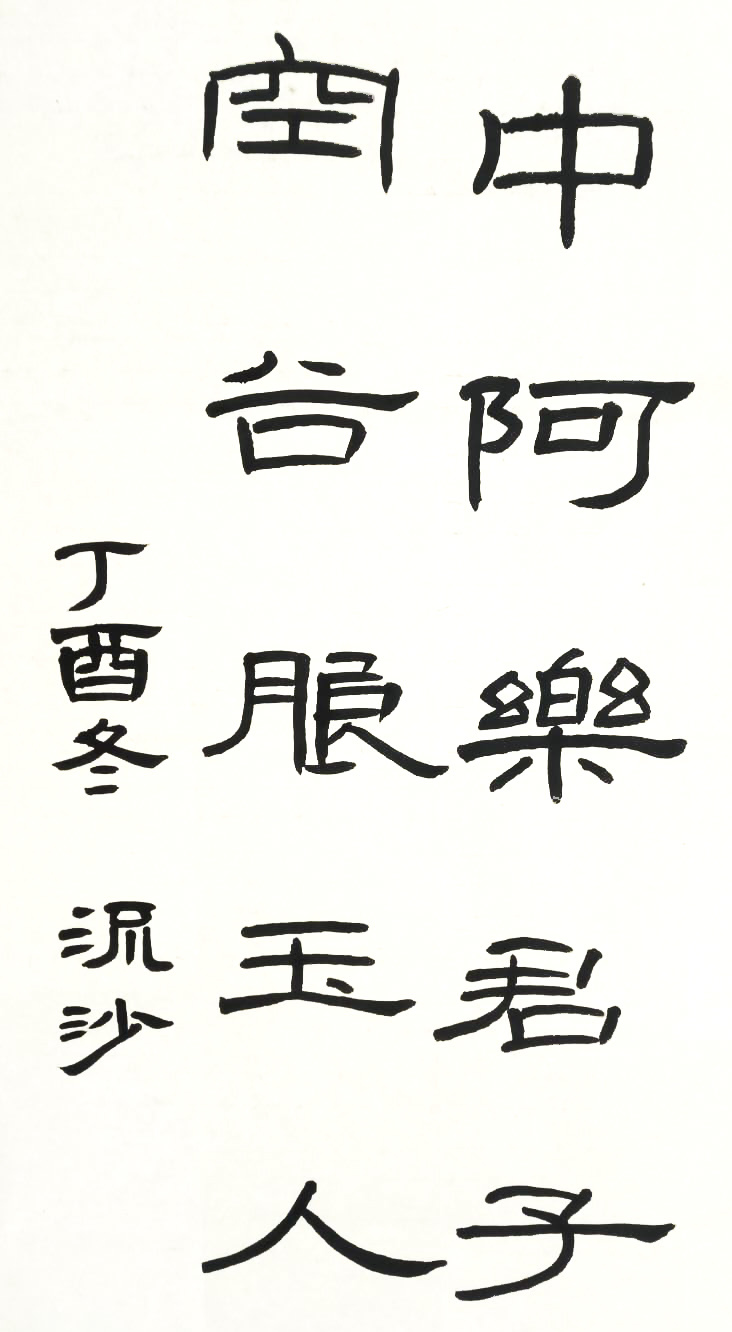 中阿樂君子
空谷朖玉人
丁酉冬 流沙